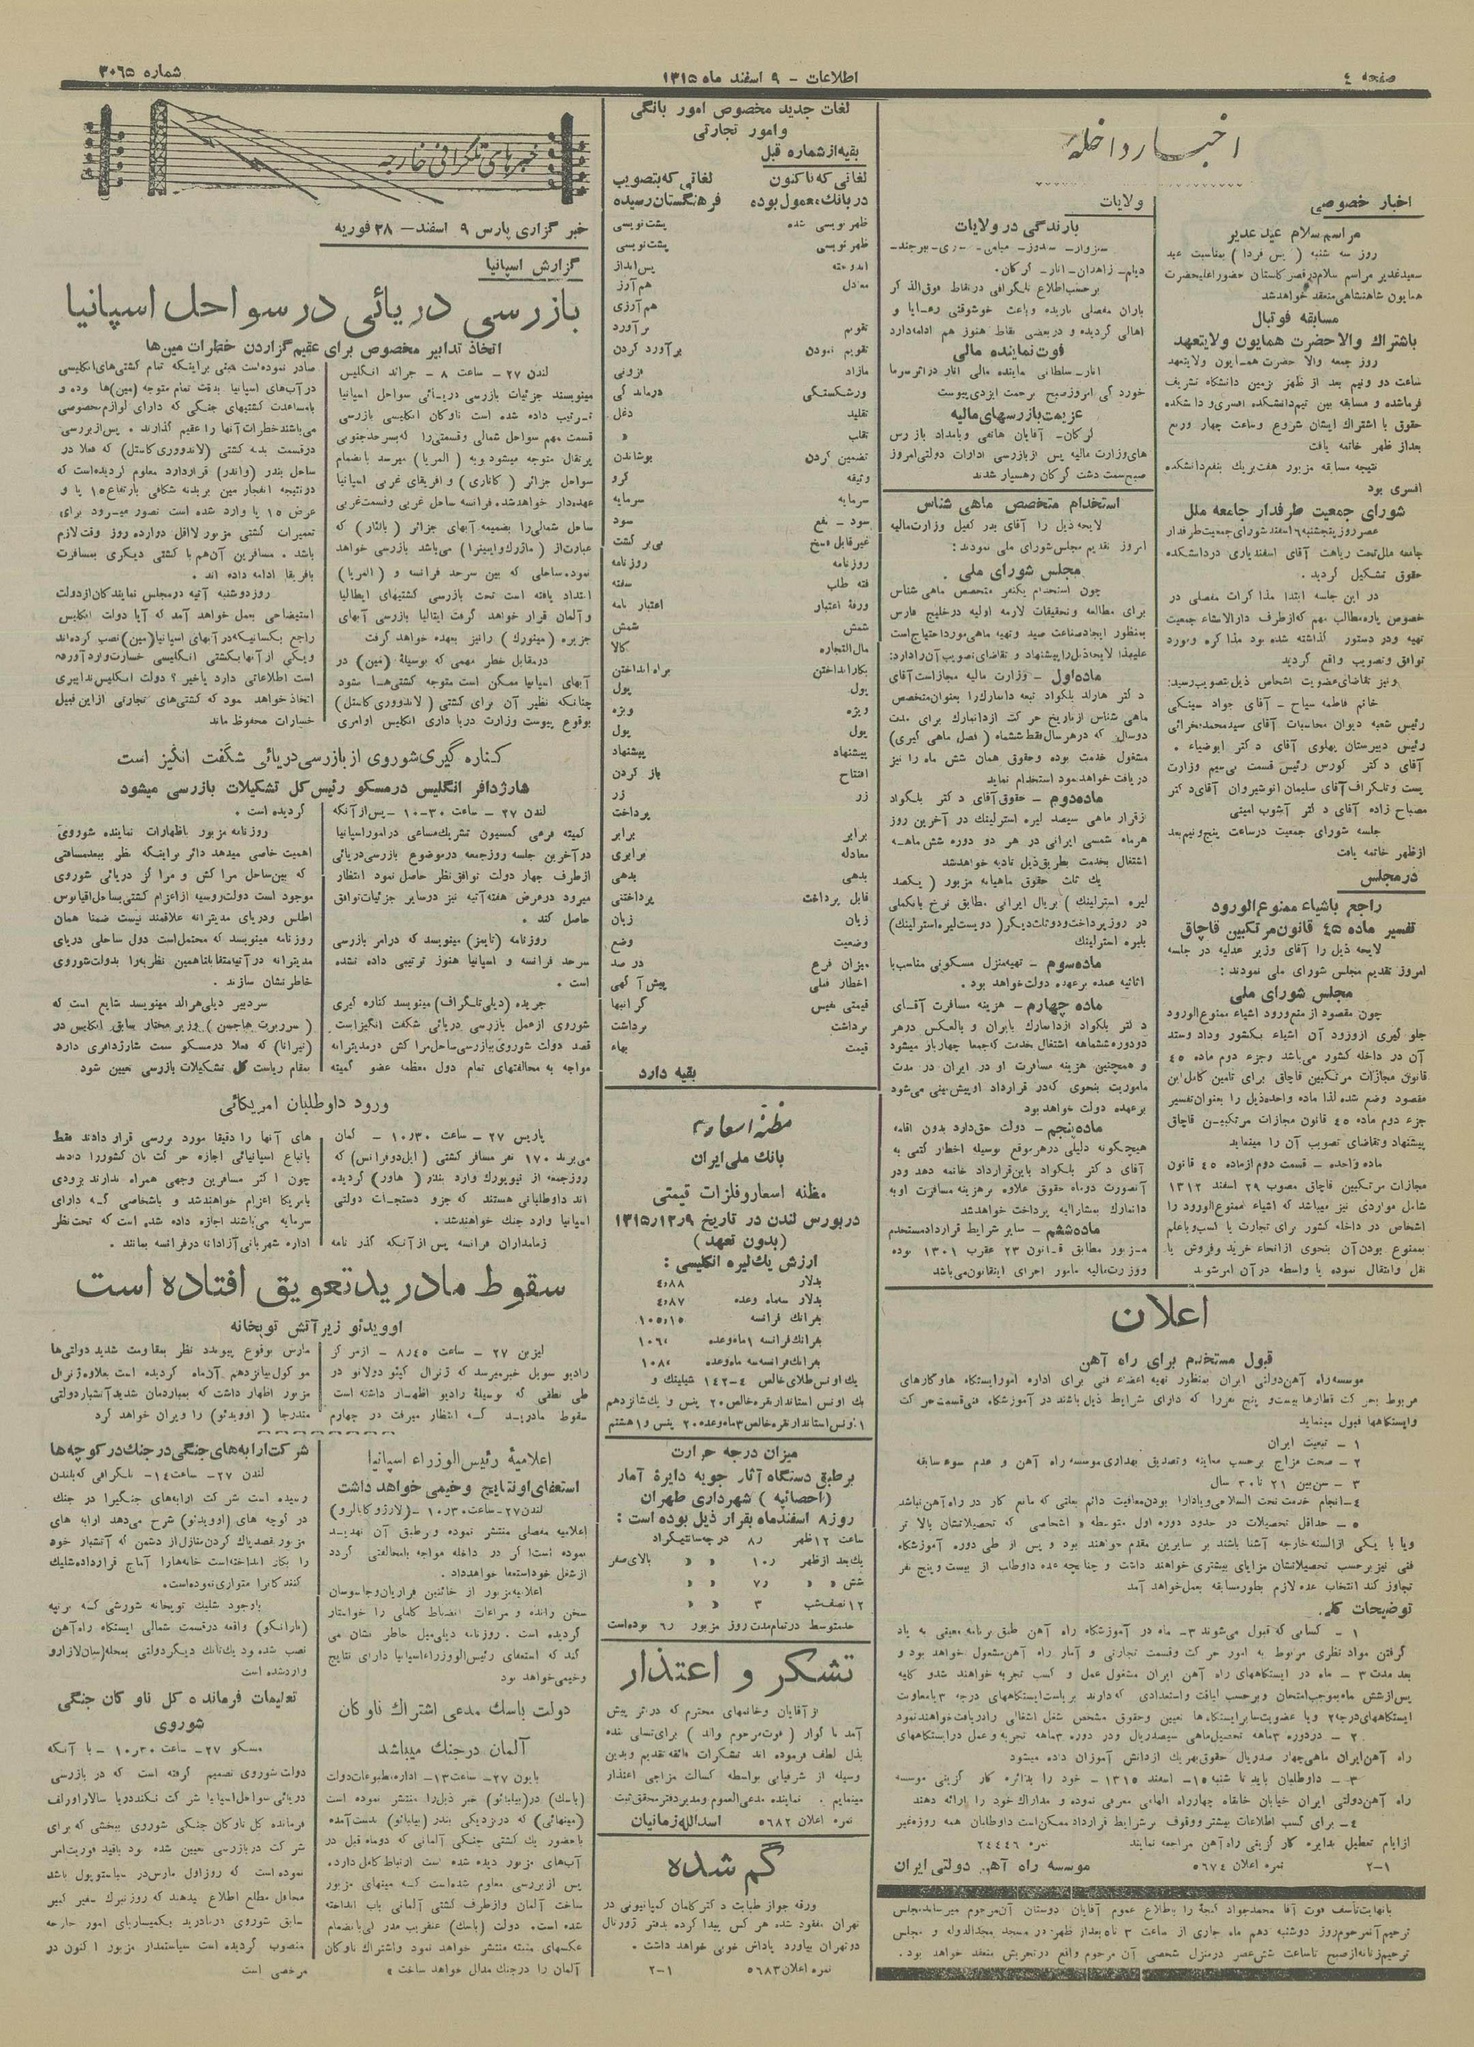 صفحه ٤
اطلاعات - ۹ اسفند ماه ۱۳۱۵
شماره ۳۰۶۵
اخبار داخله
اخبار خصوصی
مراسم سلام عید غدیر
روز سه شنبه ( پس فردا ) بمناسبت عید
سعید غدیر مراسم سلام در قصر گلستان حضور اعلیحضرت
همایون شاهنشاهی منعقد خواهد شد
مسابقه فوتبال
باشتراک والاحضرت همایون ولایتعهد
روز جمعه والا حضرت همایون ولایتعهد
ساعت دو ونیم بعد از ظهر بزمین دانشگاه تشریف
فرماشده و مسابقه بین تیم دانشکده افسری و دانشکده
حقوق با اشتراک ایشان شروع وساعت چهار وربع
بعداز ظهر خاتمه یافت
نتیجه مسابقه مزبور هفت بریك بنفع دانشکده
افسری بود
شورای جمعیت طرفدار جامعه ملل
عصر روز پنجشنبه ٦ اسفند شورای جمعیت طرفدار
جامعه ملل تحت ریاست آقای اسفندیاری در دانشکده
حقوق تشکیل گردید .
در این جلسه ابتدا مذاکرات مفصلی در
خصوص پاره مطالب مهم که از طرف دارالانشاء جمعیت
تهیه ودر دستور گذاشته شده بود مذاکره ومورد
توافق وتصویب واقع گردید
ونیز تقاضای عضویت اشخاص ذیل تصویب رسید:
خانم فاطمه سیاح - آقای جواد سینکی
رئیس شعبه دیوان محاسبات آقای سید محمد بحرانی
رئیس دبیرستان پهلوی آقای دکتر ابوضیاء .
آقای دکتر کورس رئیس قسمت بی سیم وزارت
پست وتلگراف آقای سلیمان انوشیروان آقای دکتر
مصباح زاده آقای دکتر آشوب امینی
جلسه شورای جمعیت در ساعت پنج ونیم بعد
از ظهر خاتمه یافت
در مجلس
راجع باشیاء ممنوع الورود
تفسیر ماده ٤٥ قانون مرتکبین قاچاق
لایحه ذیل را آقای وزیر عدلیه در جلسه
امروز تقدیم مجلس شورای ملی نمودند :
مجلس شورای ملی
چون مقصود از منع ورود اشیاء ممنوع الورود
جلو گیری از ورود آن اشیاء بکشور وداد وستد
آن در داخله کشور می باشد وجزء دوم ماده ٤٥
قانون مجازات مرتکبین قاچاق برای تامین کامل این
مقصود وضع شده لذا ماده واحده ذیل را بعنوان تفسیر
جزء دوم ماده ٤٥ قانون مجازات مرتکبین قاچاق
پیشنهاد وتقاضای تصویب آن را مینماید
ماده واحده - قسمت دوم از ماده ٤٥ قانون
مجازات مرتکبین قاچاق مصوب ٢٩ اسفند ۱۳۱۲
شامل مواردی نیز میباشد که اشیاء ممنوع الورود را
اشخاص در داخله کشور برای تجارت یا کسب با علم
بممنوع بودن آن بنحوی از انحاء خرید وفروش یا
نقل وانتقال نموده یا واسطه در آن امر شوند
ولایات
بارندگی در ولایات
دیلم - زاهدان - انار - گرگان.
برحسب اطلاع تلگرافی در نقاط فوق الذکر
باران مفصلی باریده وباعث خوشوقتی رعایا و
اهالی گردیده و در بعضی نقاط هنوز هم ادامه دارد
فوت نماینده مالی
انار - سلطانی نماینده مالی انار در اثر سرما
خوردگی امروز صبح برحمت ایزدی پیوست
عزیمت بازرسهای مالیه
گرگان - آقایان هاتفی وبامداد بازرس
های وزارت مالیه پس از بازرسی ادارات دولتی امروز
صبح سمت دشت گرگان رهسپار شدند
استخدام متخصص ماهی شناس
لایحه ذیل را آقای بدر کفیل وزارت مالیه
امروز تقدیم مجلس شورای ملی نمودند :
مجلس شورای ملی .
چون استخدام یکنفر متخصص ماهی شناس
برای مطالعه وتحقیقات لازمه اولیه در خلیج فارس
بمنظور ایجاد صناعت صید وتهیه ماهی مورد احتیاج است
علیهذا لایحه ذیل را پیشنهاد و تقاضای تصویب آن را دارد:
ماده اول - وزارت مالیه مجاز است آقای
دکتر هارلد بلگواد تبعه دانمارک را بعنوان متخصص
ماهی شناس از تاریخ حرکت از دانمارک برای مدت
دوسال که در هر سال فقط ششماه ( فصل ماهی گیری)
مشغول خدمت بوده وحقوق همان شش ماه را نیز
دریافت خواهد نمود استخدام نماید
ماده دوم - حقوق آقای دکتر بلگواد
از قرار ماهی سیصد لیره استرلینک در آخرین روز
هر ماه شمسی ایرانی در هر دو دوره شش ماهه
اشتغال بخدمت بطریق ذیل تادیه خواهد شد
یك ثلث حقوق ماهیانه مزبور ( یکصد
لیره استرلینک ) بریال ایرانی مطابق نرخ بانک ملی
در روز پرداخت ودوثلث دیگر( دویست لیره استرلینک)
بلیره استرلینک
ماده سوم - تهیه منزل مسکونی مناسب با
اثاثیه عمده برعهده دولت خواهد بود .
ماده چهارم - هزینه مسافرت آقای
دکتر بلگواد از دانمارک بایران و بالعکس در هر
دو دوره ششماهه اشتغال خدمت که جمعا چهار بار میشود
و همچنین هزینه مسافرت او در ایران در مدت
ماموریت بنحوی که در قرارداد او پیش بینی می شود
برعهده دولت خواهد بود
ماده پنجم - دولت حق دارد بدون اقامه
هیچگونه دلیلی در هر موقع بوسیله اخطار کتبی به
آقای دکتر بلگواد باین قرارداد خاتمه دهد ودر
آنصورت دو ماه حقوق علاوه بر هزینه مسافرت او به
دانمارک بمشارالیه پرداخت خواهد شد
ماده ششم - سایر شرایط قرارداد مستخدم
مزبور مطابق قانون ۲۳ عقرب ۱۳۰۱ بوده
ووزارت مالیه مامور اجرای اینقانون می باشد
اعلان
قبول مستخدم برای راه آهن
موسسه راه آهن دولتی ایران بمنظور تهیه اعضاء فنی برای اداره امور ایستگاه ها و کارهای
مربوط بحرکت قطارها بیست و پنج نفر را که دارای شرایط ذیل باشند در آموزشگاه فنی قسمت حرکت
وایستگاهها قبول مینماید
۱ - تبعیت ایران
۲ - صحت مزاج برحسب معاینه وتصدیق بهداری موسسه راه آهن و عدم سوء سابقه
۳ - سن بین ۲۱ تا ۳۰ سال
٤ - انجام خدمت تحت السلاحی ویا دارا بودن معافیت دائم بعلتی که مانع کار در راه آهن نباشد
۵ - حداقل تحصیلات در حدود دوره اول متوسطه و اشخاصی که تحصیلاتشان بالا تر
ویا با یکی از السنه خارجه آشنا باشند بر سایرین مقدم خواهند بود و پس از طی دوره آموزشگاه
فنی نیز برحسب تحصیلاتشان مزایای بیشتری خواهند داشت و چنانچه عده داوطلب از بیست وپنج نفر
تجاوز کند انتخاب عده لازم بطور مسابقه بعمل خواهد آمد
توضیحات کلی
۱ - کسانی که قبول می شوند ۳ ماه در آموزشگاه راه آهن طبق برنامه معینی به یاد
گرفتن مواد نظری مربوط به امور حرکت وقسمت تجارتی و آمار راه آهن مشغول خواهد بود و
بعد مدت ۳ - ماه در ایستگاههای راه آهن ایران مشغول عمل و کسب تجربه خواهند شد و کلیه
پس از شش ماه بموجب امتحان وبرحسب لیاقت واستعدادی که دارند بریاست ایستگاههای درجه ۳ یا معاونت
ایستگاههای درجه ۲ ویا عضویت سایر ایستگاه ها تعیین وحقوق مشخص شغل اشغالی را دریافت خواهند نمود
۲ - در دوره ۳ ماهه تحصیل ماهی سیصد ریال ودر دوره ۳ ماهه تجربه و عمل در ایستگاههای
راه آهن ایران ماهی چهار صد ریال حقوق بهر یک از دانش آموزان داده میشود
۳ - داوطلبان باید تا شنبه ۱۵ - اسفند ۱۳۱۵ - خود را بدائره کار گزینی موسسه
راه آهن دولتی ایران خیابان خانقاه چهارراه الهامی معرفی نموده و مدارک خود را ارائه دهند
٤ - برای کسب اطلاعات بیشتر ووقوف بر شرایط قرارداد ممکن است داوطلبان همه روزه غیر
از ایام تعطیل بدایره کار گزینی راه آهن مراجعه نمایند نمره ۲٤٤٤٦
۲-۱ نمره اعلان ۵٦۷٤ موسسه راه آهن دولتی ایران
با نهایت تأسف فوت آقا محمد جواد گنجهٔ را باطلاع عموم آقایان دوستان آن مرحوم میرساند مجلس
ترحیم آنمرحوم روز دوشنبه دهم ماه جاری از ساعت ۳ تا ٥ بعد از ظهر در مسجد مجدالدوله و مجلس
ترحیم زنانه از صبح تا ساعت شش عصر در منزل شخصی آن مرحوم واقع در تجریش منعقد خواهد بود .
لغات جدید مخصوص امور بانگی
وامور تجارتی
بقیه از شماره قبل
لغاتی که تا کنون لغاتی که بتصویب
در بانک معمول بوده فرهنگستان رسیده
ظهر نویسی شده پشت نویسی
ظهر نویسی پشت نویسی
اندوخته پس انداز
معادل هم آرز
هم آرزی
تقویم بر آورد
تقویم نمودن بر آورد کردن
مازاد فزونی
ورشکستگی درماندگی
تقلید دغل
تقلب «
تضمین کردن پوشاندن
وثیقه گرو
سرمایه سرمایه
سود - نفع سود
غیر قابل فسخ بی بر گشت
روزنامه روزنامه
فته طلب سفته
ورقهٔ اعتبار اعتبار نامه
شمش شمش
مال التجاره کالا
بکار انداختن براه انداختن
پول پول
ویژه ویژه
پول پول
پیشنهاد پیشنهاد
افتتاح باز کردن
زر زر
پرداخت
برابر برابر
معادله برابری
بدهی بدهی
قابل پرداخت پرداختنی
زیان زیان
وضعیت وضع
میزان فرع در صد
اخطار قبلی پیش آگهی
قیمتی نفیس گرانبها
برداشت برداشت
قیمت بهاء
بقیه دارد
مظنهٔ اسعار
بانک ملی ایران
مظنه اسعار و فلزات قیمتی
در بورس لندن در تاریخ ۱۳۱۵٫۱۲٫۹
(بدون تعهد )
ارزش یك لیره انگلیسی :
بدلار ٤٫۸۸
بدلار سه ماه وعده ٤٫۸۷
بفرانک فرانسه ۱۰۵٫۱۵
بفرانک فرانسه ۱ ماه وعده ۱۰٦٫
بفرانک فرانسه سه ماه وعده ۱۰۸٫
یك اونس طلای خالص ٤-۱٤۲ شیلینک و
یك اونس استاندار نقره خالص ۲۰ پنس و یك شانزدهم
۱ اونس استاندار نقره خالص ۳ ماه وعده ۲۰ پنس و ۱ هشتم
میزان درجه حرارت
بر طبق دستگاه آثار جویه دایرهٔ آمار
(احصائیه ) شهرداری طهران
روز ۸ اسفند ماه بقرار ذیل بوده است :
ساعت ۱۲ ظهر ۸٫ درجه سانتیگراد
یك بعد از ظهر ۱۰٫ « « بالای صفر
شش « « ۷٫ « «
۱۲ نصف شب ۳ « «
حد متوسط در تمام مدت روز مزبور ٦٫ بوده است
تشکر و اعتذار
از آقایان وخانمهای محترم که در اثر پیش
آمد نا گوار ( فوت مرحوم والد ) برای تسلی بنده
بذل لطف فرموده اند تشکرات فائقه تقدیم وبدین
وسیله از شرفیابی بواسطه کسالت مزاجی اعتذار
مینمایم . نماینده مدعی العموم ومدیر دفتر محقق ثبت
نمره اعلان ۵٦۸۲ اسدالله زمانیان
گم شده
ورقه جواز طبابت دکتر کامان کمپانیونی در
تهران مفقود شده هر کس پیدا کرده بدفتر ژورنال
دو تهران بیاورد پاداش خوبی خواهد داشت .
نمره اعلان ۵٦۸۳ ۲-۱
خبرهای تلگرافی خارجه
خبر گزاری پارس ۹ اسفند - ۲۸ فوریه
گزارش اسپانیا
بازرسی دریائی در سواحل اسپانیا
اتخاذ تدابیر مخصوص برای عقیم گزاردن خطرات مین ها
لندن ۲۷ - ساعت ۸ - جرائد انگلیس
مینویسند جزئیات بازرسی دریائی سواحل اسپانیا
ترتیب داده شده است ناوگان انگلیسی بازرسی
قسمت مهم سواحل شمالی وقسمتی را که بسرحد جنوبی
پرتقال متوجه میشود وبه ( المریا) میرسد بانضمام
سواحل جزائر ( کاناری) و افریقای غربی اسپانیا
عهده دار خواهد شد. فرانسه ساحل غربی وقسمت غربی
ساحل شمالی را بضمیمه آبهای جزائر (بالئار) که
عبارت از ( ماژرک و ایبیزا) می باشد بازرسی خواهد
نمود. ساحلی که بین سرحد فرانسه و (المریا)
امتداد یافته است تحت بازرسی کشتیهای ایطالیا
وآلمان قرار خواهد گرفت ایتالیا بازرسی آبهای
جزیره (مینورک) رانیز بعهده خواهد گرفت
در مقابل خطر مهمی که بوسیلهٔ (مین) در
آبهای اسپانیا ممکن است متوجه کشتی ها شود
چنانکه نظیر آن برای کشتی (لاندووری کاستل)
بوقوع پیوست وزارت دریاداری انگلیس اوامری
صادر نموده است مبنی براینکه تمام کشتی های انگلیسی
در آب های اسپانیا بدقت تمام متوجه (مین)ها بوده و
بامساعدت کشتیهای جنگی که دارای لوازم مخصوصی
می باشند خطرات آنها را عقیم گذارند . پس از بررسی
در قسمت بدنه کشتی (لاندووری کاستل) که فعلا در
ساحل بندر (واندر) قراردارد معلوم گردیده است که
در نتیجه انفجار مین بربدنه شکافی بارتفاع ۱۵ پا و
عرض ۱۵ پا وارد شده است تصور میرود برای
تعمیرات کشتی مزبور لااقل دوازده روز وقت لازم
باشد . مسافرین آن هم با کشتی دیگری بمسافرت
بافریقا ادامه داده اند .
روز دوشنبه آتیه در مجلس نمایندگان از دولت
استیضاحی بعمل خواهد آمد که آیا دولت انگلیس
راجع بکسانیکه در آبهای اسپانیا (مین) نصب کرده اند
ویکی از آنها بکشتی انگلیسی خسارت وارد آورده
است اطلاعاتی دارد یاخیر ؟ دولت انگلیس تدابیری
اتخاذ خواهد نمود که کشتی های تجارتی از این قبیل
خسارات محفوظ ماند
کناره گیری شوروی از بازرسی دریائی شگفت انگیز است
شارژدافر انگلیس در مسکو رئیس کل تشکیلات بازرسی میشود
لندن ۲۷ - ساعت ۳۰-۱۰ - پس از آنکه
کمیته فرعی کمسیون تشریک مساعی در امور اسپانیا
در آخرین جلسه روز جمعه در موضوع بازرسی دریائی
از طرف چهار دولت توافق نظر حاصل نمود انتظار
میرود در عرض هفته آتیه نیز در سایر جزئیات توافق
حاصل کند .
روزنامه (تایمز) مینویسد که در امر بازرسی
سرحد فرانسه و اسپانیا هنوز ترتیبی داده نشده
است .
جریده (دیلی تلگراف) مینویسد کناره گیری
شوروی از عمل بازرسی دریائی شگفت انگیز است
قصد دولت شوروی ببازرسی ساحل مراکش در مدیترانه
مواجه به مخالفتهای تمام دول معظمه عضو کمیته
گردیده است .
روزنامه مزبور باظهارات نماینده شوروی
اهمیت خاصی میدهد دائر براینکه نظر ببعد مسافتی
که بین ساحل مراکش و مراکز دریائی شوروی
موجود است دولت روسیه از اعزام کشتی بساحل اقیانوس
اطلس ودریای مدیترانه علاقمند نیست ضمنا همان
روزنامه مینویسد که محتمل است دول ساحلی دریای
مدیترانه در آتیه متفقا بتأمین همین نظریه را بدولت شوروی
خاطر نشان سازند .
سردبیر دیلی هرالد مینویسد شایع است که
( سر ربرت هاجسن ) وزیر مختار سابق انگلیس در
(تیرانا) که فعلا در مسکو سمت شارژدافری دارد
بمقام ریاست کل تشکیلات بازرسی تعیین شود
ورود داوطلبان امریکائی
پاریس ۲۷ - ساعت ۱۰٫۳۰ - گمان
می برند ۱۷۰ نفر مسافر کشتی (ایل دوفرانس) که
روز جمعه از نیویورک وارد بندر( هاور) گردیده
اند داوطلبانی هستند که جزو دستجات دولتی
اسپانیا وارد جنک خواهند شد .
زمامداران فرانسه پس از آنکه گذر نامه
های آنها را دقیقا مورد بررسی قرار دادند فقط
باتباع اسپانیائی اجازه حرکت بآن کشور را دادند
چون اکثر مسافرین وجهی همراه ندارند بزودی
بامریکا اعزام خواهند شد و باشخاصی که دارای
سرمایه می باشند اجازه داده شده است که تحت نظر
اداره شهربانی آزادانه در فرانسه بمانند .
سقوط مادرید بتعویق افتاده است
اوویدئو زیر آتش توپخانه
لیزبن ۲۷ - ساعت ۸٫٤۵ - از مرکز
رادیو سویل خبر میرسد که ژنرال کیپو دولانو در
طی نطقی که بوسیلهٔ رادیو اظهار داشته است
سقوط مادرید که انتظار میرفت در چهارم
مارس بوقوع بپیوندد نظر بمقاومت شدید دولتی ها
موکول بپانزدهم آن ماه گردیده است بعلاوه ژنرال
مزبور اظهار داشت که بمباردمان شدید آتشبار دولتی
متدرجا ( اوویدئو) را ویران خواهد کرد
اعلامیهٔ رئیس الوزراء اسپانیا
استعفای او نتایج وخیمی خواهد داشت
لندن ۲۷ - ساعت ۱۰٫۳۰ - (لارژو کابالرو)
اعلامیه مفصلی منتشر نموده و برطبق آن تهدید
نموده است اگر در داخله مواجه بامخالفتی گردد
از شغل خود استعفا خواهد داد .
اعلامیه مزبور از خائنین فراریان وجاسوسان
سخن رانده و مراعات انضباط کاملی را خواستار
گردیده است . روزنامه دیلی میل خاطر نشان می
کند که استعفای رئیس الوزراء اسپانیا دارای نتایج
وخیمی خواهد بود
دولت باسک مدعی اشتراک ناوگان
آلمان در جنک میباشد
بایون ۲۷ - ساعت ۱۳ - اداره مطبوعات دولت
(باسک) در (بیلبائو) خبر ذیل را منتشر نموده است
(مینهائی) که در نزدیکی بندر (بیلبائو) بدست آمده
با حضور یک کشتی جنگی آلمانی که دو ماه قبل در
آب های مزبور دیده شده است ارتباط کامل دارد .
پس از بررسی معلوم شده است که مینهای مزبور
ساخت آلمان واز طرف کشتی آلمانی بآب انداخته
شده است. دولت (باسک) عنقریب مدرکی بانضمام
عکسهای مثبته منتشر خواهد نمود واشتراک ناوگان
آلمان را در جنک مدلل خواهد ساخت »
شرکت ارابه های جنگی در جنک در کوچه ها
لندن ۲۷ - ساعت ۱٤ - تلگرافی که بلندن
رسیده است شرکت ارابه های جنگی را در جنک
در کوچه های (اوویدئو) شرح می دهد ارابه های
مزبور بقصد پاک کردن منازل از دشمن که آتشبار خود
را بکار انداخته است خانه ها را آماج قرار داده شلیک
کنندگان را متواری نموده است .
باوجود شلیک توپخانه شورشی که برتپه
(نارانکو) واقعه در قسمت شمالی ایستگاه راه آهن
نصب شده بود یک تانک دیگر دولتی بمحله (سان لازارو)
وارد شده است
تعلیمات فرمانده کل ناوگان جنگی
شوروی
مسکو ۲۷ - ساعت ۱۰٫۳۰ - با آنکه
دولت شوروی تصمیم گرفته است که در بازرسی
دریائی سواحل اسپانیا شرکت نکند دریا سالار اورلف
فرمانده کل ناوگان جنگی شوروی ببخشی که برای
شرکت در بازرسی تعیین شده بود باقید فوریت امر
نموده است که روز اول مارس در سباستوپول باشد
محافل مطلع اطلاع میدهند که روزنبرک سفیر کبیر
سابق شوروی در مادرید بکمیساریای امور خارجه
منصوب گردیده است سیاستمدار مزبور اکنون در
مرخصی است